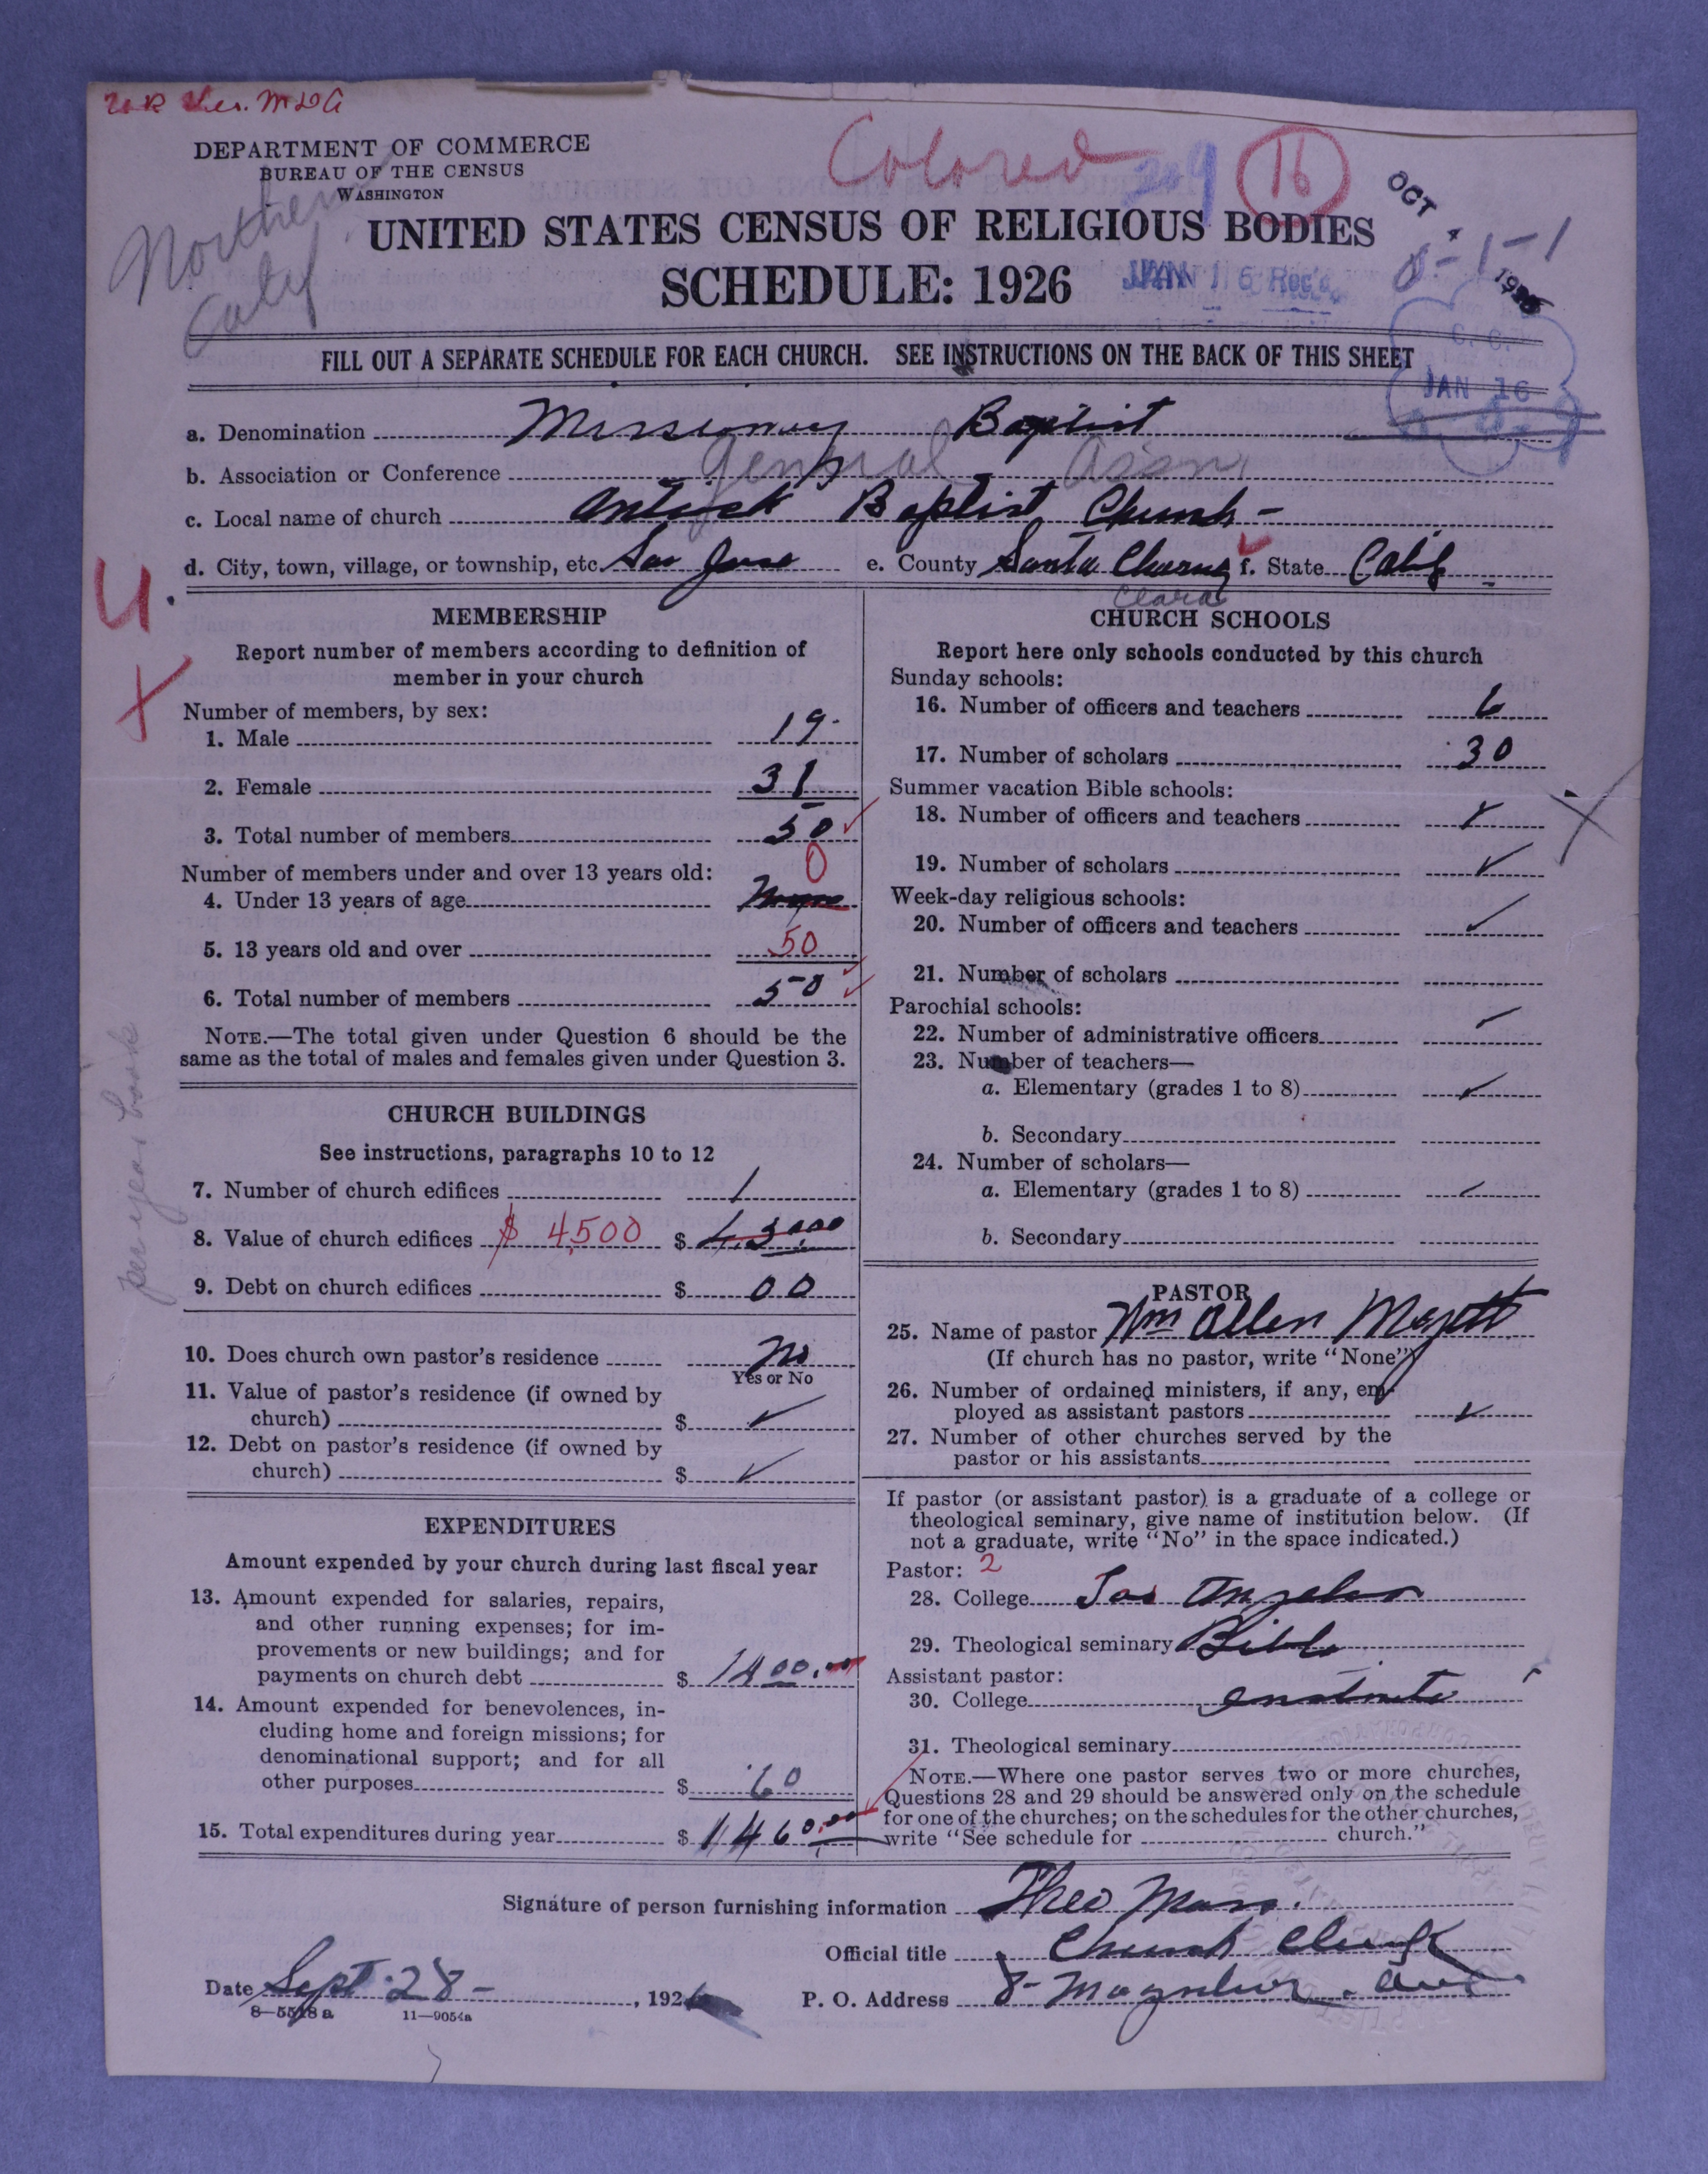 DEPARTMENT OF COMMERCE
BUREAU OF THE CENSUS
WASHINGTON
Colored
209
16
OCT 4 1926
Northern
Calif
UNITED STATES CENSUS OF RELIGIOUS BODIES
SCHEDULE: 1926
JAN 16 Rec'd
8-1-1
FILL OUT A SEPARATE SCHEDULE FOR EACH CHURCH. SEE INSTRUCTIONS ON THE BACK OF THIS SHEET
C. C.
JAN 16
a. Denomination Missionary Baptist
b. Association or Conference General Assn
c. Local name of church Antioch Baptist Church -
d. City, town, village, or township, etc. San Jose e. County Santa f. State Calif
Clara
4.
MEMBERSHIP
Report number of members according to definition of
member in your church
Number of members, by sex:
1. Male 19
2. Female 31
3. Total number of members 50
Number of members under and over 13 years old:
0
4. Under 13 years of age None
5. 13 years old and over 50
6. Total number of members 50
NOTE.—The total given under Question 6 should be the
same as the total of males and females given under Question 3.
per year book
CHURCH BUILDINGS
See instructions, paragraphs 10 to 12
7. Number of church edifices 1
8. Value of church edifices $ 4,500 $
9. Debt on church edifices $ 00
10. Does church own pastor's residence No
Yes or No
11. Value of pastor's residence (if owned by
church) $ ✓
12. Debt on pastor's residence (if owned by
church) $ ✓
EXPENDITURES
Amount expended by your church during last fiscal year
13. Amount expended for salaries, repairs,
and other running expenses; for im-
provements or new buildings; and for
payments on church debt $ 1400.00
14. Amount expended for benevolences, in-
cluding home and foreign missions; for
denominational support; and for all
other purposes $ 60
15. Total expenditures during year $ 1460.00
CHURCH SCHOOLS
Report here only schools conducted by this church
Sunday schools:
16. Number of officers and teachers 6
17. Number of scholars 30
Summer vacation Bible schools:
18. Number of officers and teachers ✓
19. Number of scholars ✓
Week-day religious schools:
20. Number of officers and teachers ✓
21. Number of scholars
Parochial schools:
22. Number of administrative officers ✓
23. Number of teachers—
a. Elementary (grades 1 to 8) ✓
b. Secondary
24. Number of scholars—
a. Elementary (grades 1 to 8) ✓
b. Secondary
PASTOR
25. Name of pastor Wm Allen
(If church has no pastor, write "None")
26. Number of ordained ministers, if any, em-
ployed as assistant pastors ✓
27. Number of other churches served by the
pastor or his assistants
If pastor (or assistant pastor) is a graduate of a college or
theological seminary, give name of institution below. (If
not a graduate, write "No" in the space indicated.)
Pastor: 2
28. College Los Angeles
29. Theological seminary Bible
Assistant pastor:
30. College
31. Theological seminary
NOTE.—Where one pastor serves two or more churches,
Questions 28 and 29 should be answered only on the schedule
for one of the churches; on the schedules for the other churches,
write "See schedule for church."
Signature of person furnishing information Theo
Official title Church Clerk
Date Sept 28 - , 1926 P. O. Address 8- Ave
8—5518 a 11—9054a